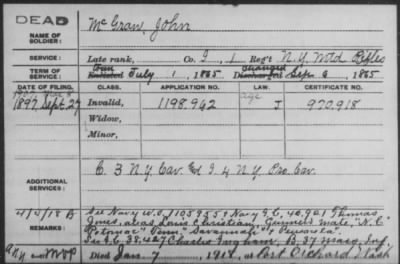 DEAD
NAME OF SOLDIER:
Mc Graw, John
SERVICE:
Late rank, Co. I, 1 Reg't N.Y. Mtd Rifles
TERM OF SERVICE:
Enlisted July 1 1865 Discharged Sep. 6, 1865
DATE OF FILING. CLASS. APPLICATION NO. LAW. CERTIFICATE NO.
1897 Sept. 27 Invalid, 1198,962 J 970,918
Widow,
Minor,
ADDITIONAL SERVICES:
C. 3 N.Y. Cav. I. 4 N.Y. Pro. Cav.
REMARKS:
See Navy Thomas
Jones, alias Louis Christian, Gunners mate, "N.C."
Potomac" Tenn" Savannah" "Pensacola"
38,427 Charles Ingham, B. 37 Mass. Inf.
Died Jan. 7, 1918, at Port Orchard Wash